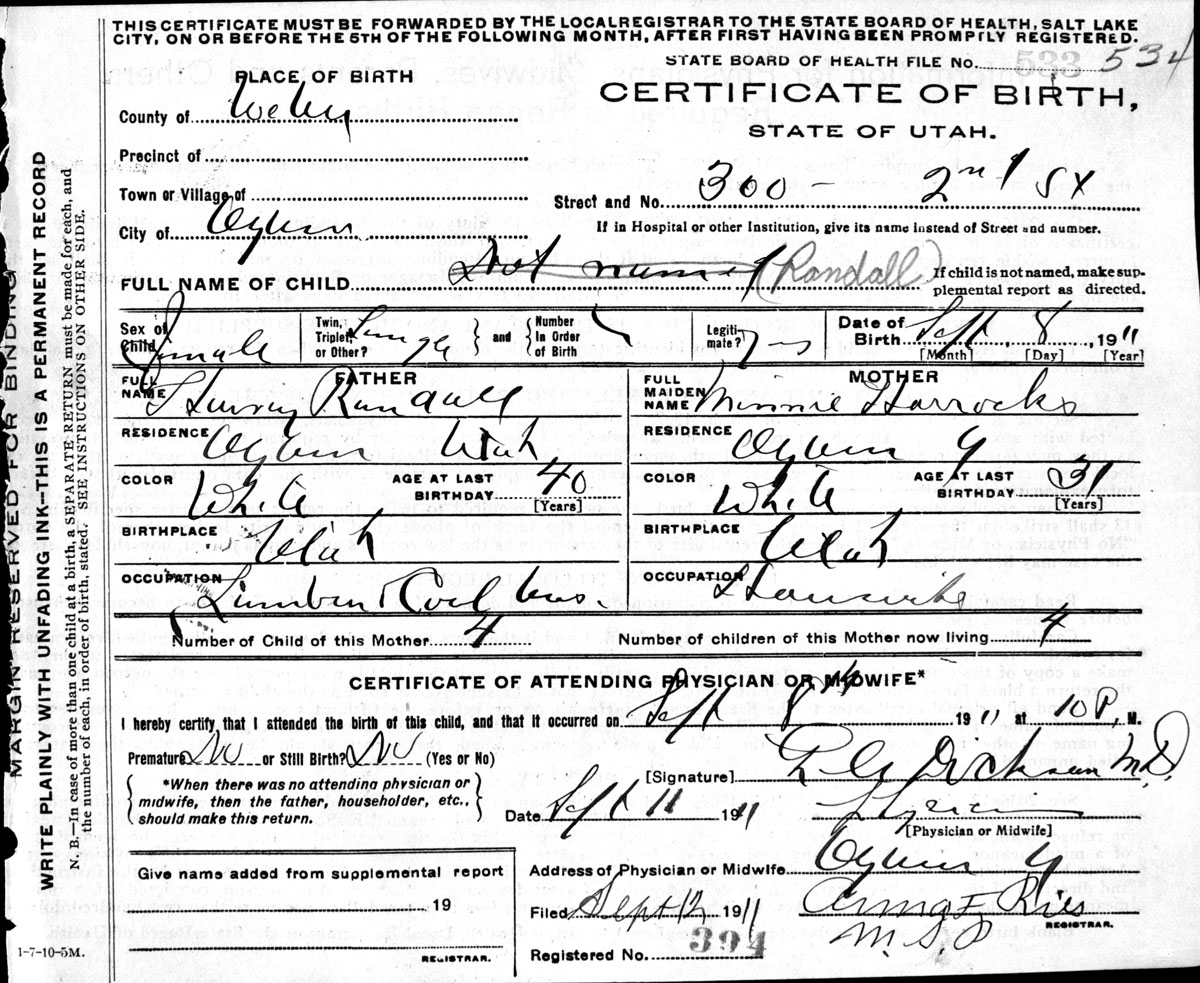 THIS CERTIFICATE MUST BE FORWARDED BY THE LOCAL REGISTRAR TO THE STATE BOARD OF HEALTH, SALT LAKE
CITY, ON OR BEFORE THE 5TH OF THE FOLLOWING MONTH, AFTER FIRST HAVING BEEN PROMPTLY REGISTERED.
STATE BOARD OF HEALTH FILE No. 533 534
PLACE OF BIRTH
CERTIFICATE OF BIRTH,
STATE OF UTAH.
County of Weber
Precinct of
Town or Village of
Street and No. 300 - 2nd St
City of Ogden
If in Hospital or other Institution, give its name instead of Street and number.
FULL NAME OF CHILD Not named (Randall)
If child is not named, make sup-
plemental report as directed.
Sex of Child Female
Twin, Triplet, or Other? Single
and
Number in Order of Birth
Legiti-mate? Yes
Date of Birth Sept. 8, 1911
[Month] [Day] [Year]
FATHER
FULL NAME Harvey Randall
MOTHER
FULL MAIDEN NAME Minnie Horrocks
RESIDENCE Ogden Utah
RESIDENCE Ogden
COLOR White
AGE AT LAST BIRTHDAY 40
[Years]
COLOR White
AGE AT LAST BIRTHDAY 31
[Years]
BIRTHPLACE Utah
BIRTHPLACE Utah
OCCUPATION Lumber Coal bus.
OCCUPATION Housewife
Number of Child of this Mother 4
Number of children of this Mother now living 4
CERTIFICATE OF ATTENDING PHYSICIAN OR MIDWIFE*
I hereby certify that I attended the birth of this child, and that it occurred on Sept 8th 1911 at 10 P, M.
Premature No or Still Birth? No (Yes or No)
[Signature] M.D.
*When there was no attending physician or
midwife, then the father, householder, etc.,
should make this return.
Date Sept 11 1911
[Physician or Midwife]
Give name added from supplemental report
Address of Physician or Midwife Ogden
191
Filed Sept 12, 1911
REGISTRAR.
Registered No. 394
REGISTRAR.
1-7-10-5M.
MARGIN RESERVED FOR BINDING
WRITE PLAINLY WITH UNFADING INK—THIS IS A PERMANENT RECORD
N. B.—In case of more than one child at a birth, a SEPARATE RETURN must be made for each, and
the number of each, in order of birth, stated. SEE INSTRUCTIONS ON OTHER SIDE.